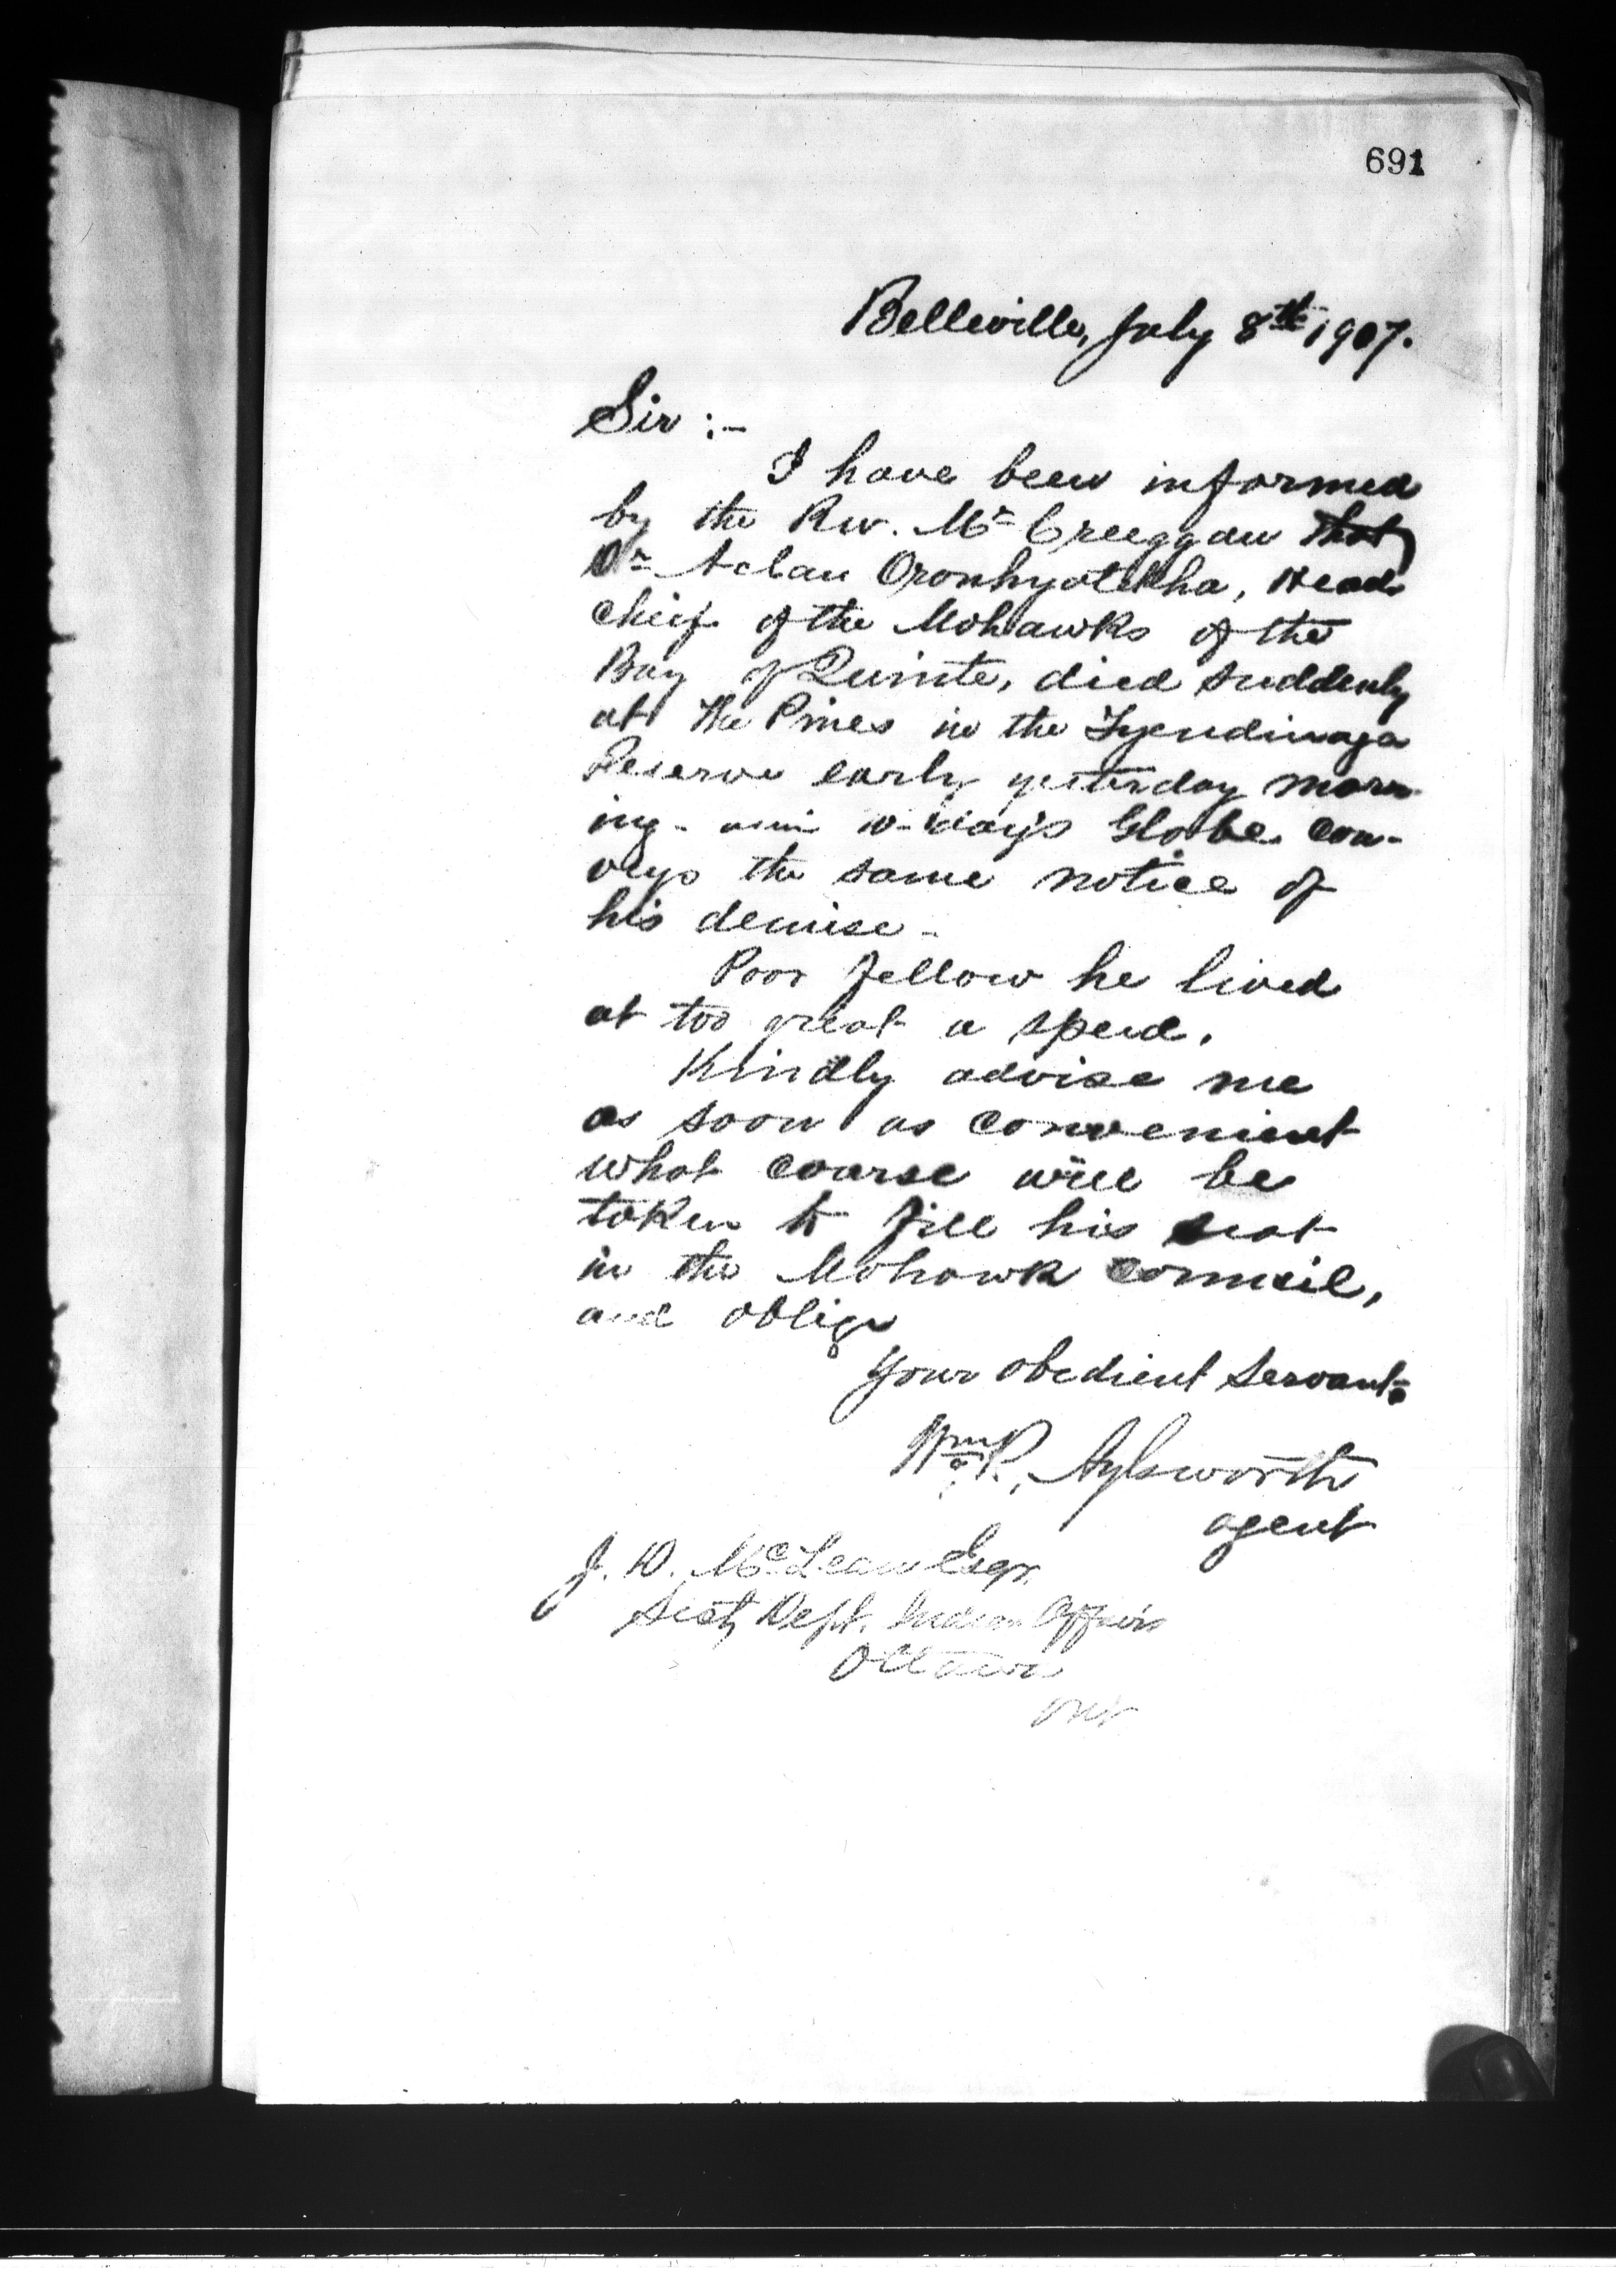 691
Belleville, July 8th 1907.
Sir :-
I have been informed
by the Rev. Mr Creeggan that
Dr Aclan Oronhyatekha, Head
Chief of the Mohawks of the
Bay of Quinte, died suddenly
at The Pines in the Tyendinaga
Reserve early yesterday morn-
ing - to-day's Globe con-
veys the same notice of
his demise -
Poor fellow he lived
at too great a speed.
Kindly advise me
as soon as convenient
what course will be
taken to fill his seat
in the Mohawk Council,
and oblige
Your obedient Servant
Wm R. Aylsworth
agent
J. D. McLean Esqr.
Secty Dept. Indian Affairs
Ottawa
Ont